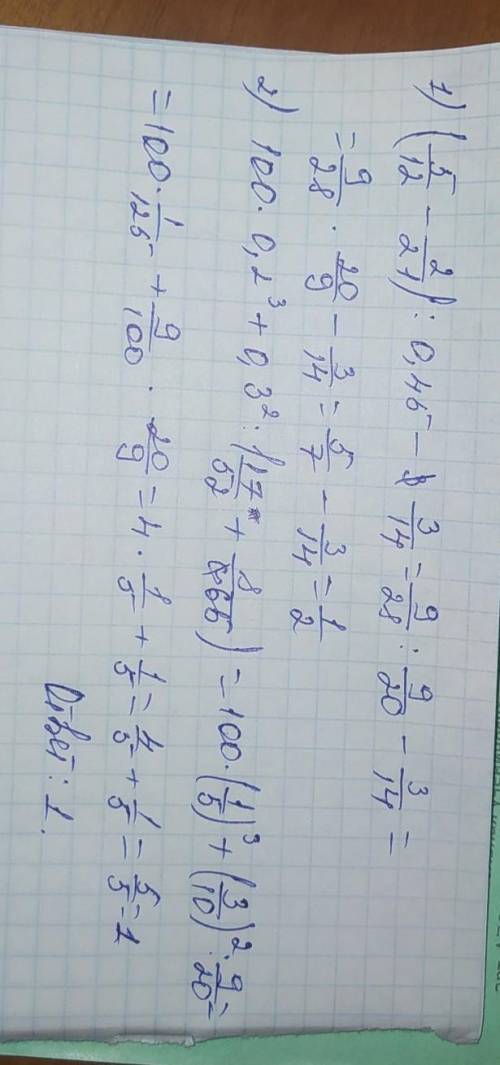 1) (5/12 - 2/21) : 0,45 - 3/14 = 9/28 : 9/20 - 3/14 =
= 9/28 · 20/9 - 3/14 = 5/7 - 3/14 = 1/2
2) 100 · 0,2³ + 0,3² : (17/52 + 8/65) = 100 · (1/5)³ + (3/10)² : 9/20 =
= 100 · 1/125 + 9/100 · 20/9 = 4 · 1/5 + 1/5 = 4/5 + 1/5 = 5/5 = 1
Ответ: 1.